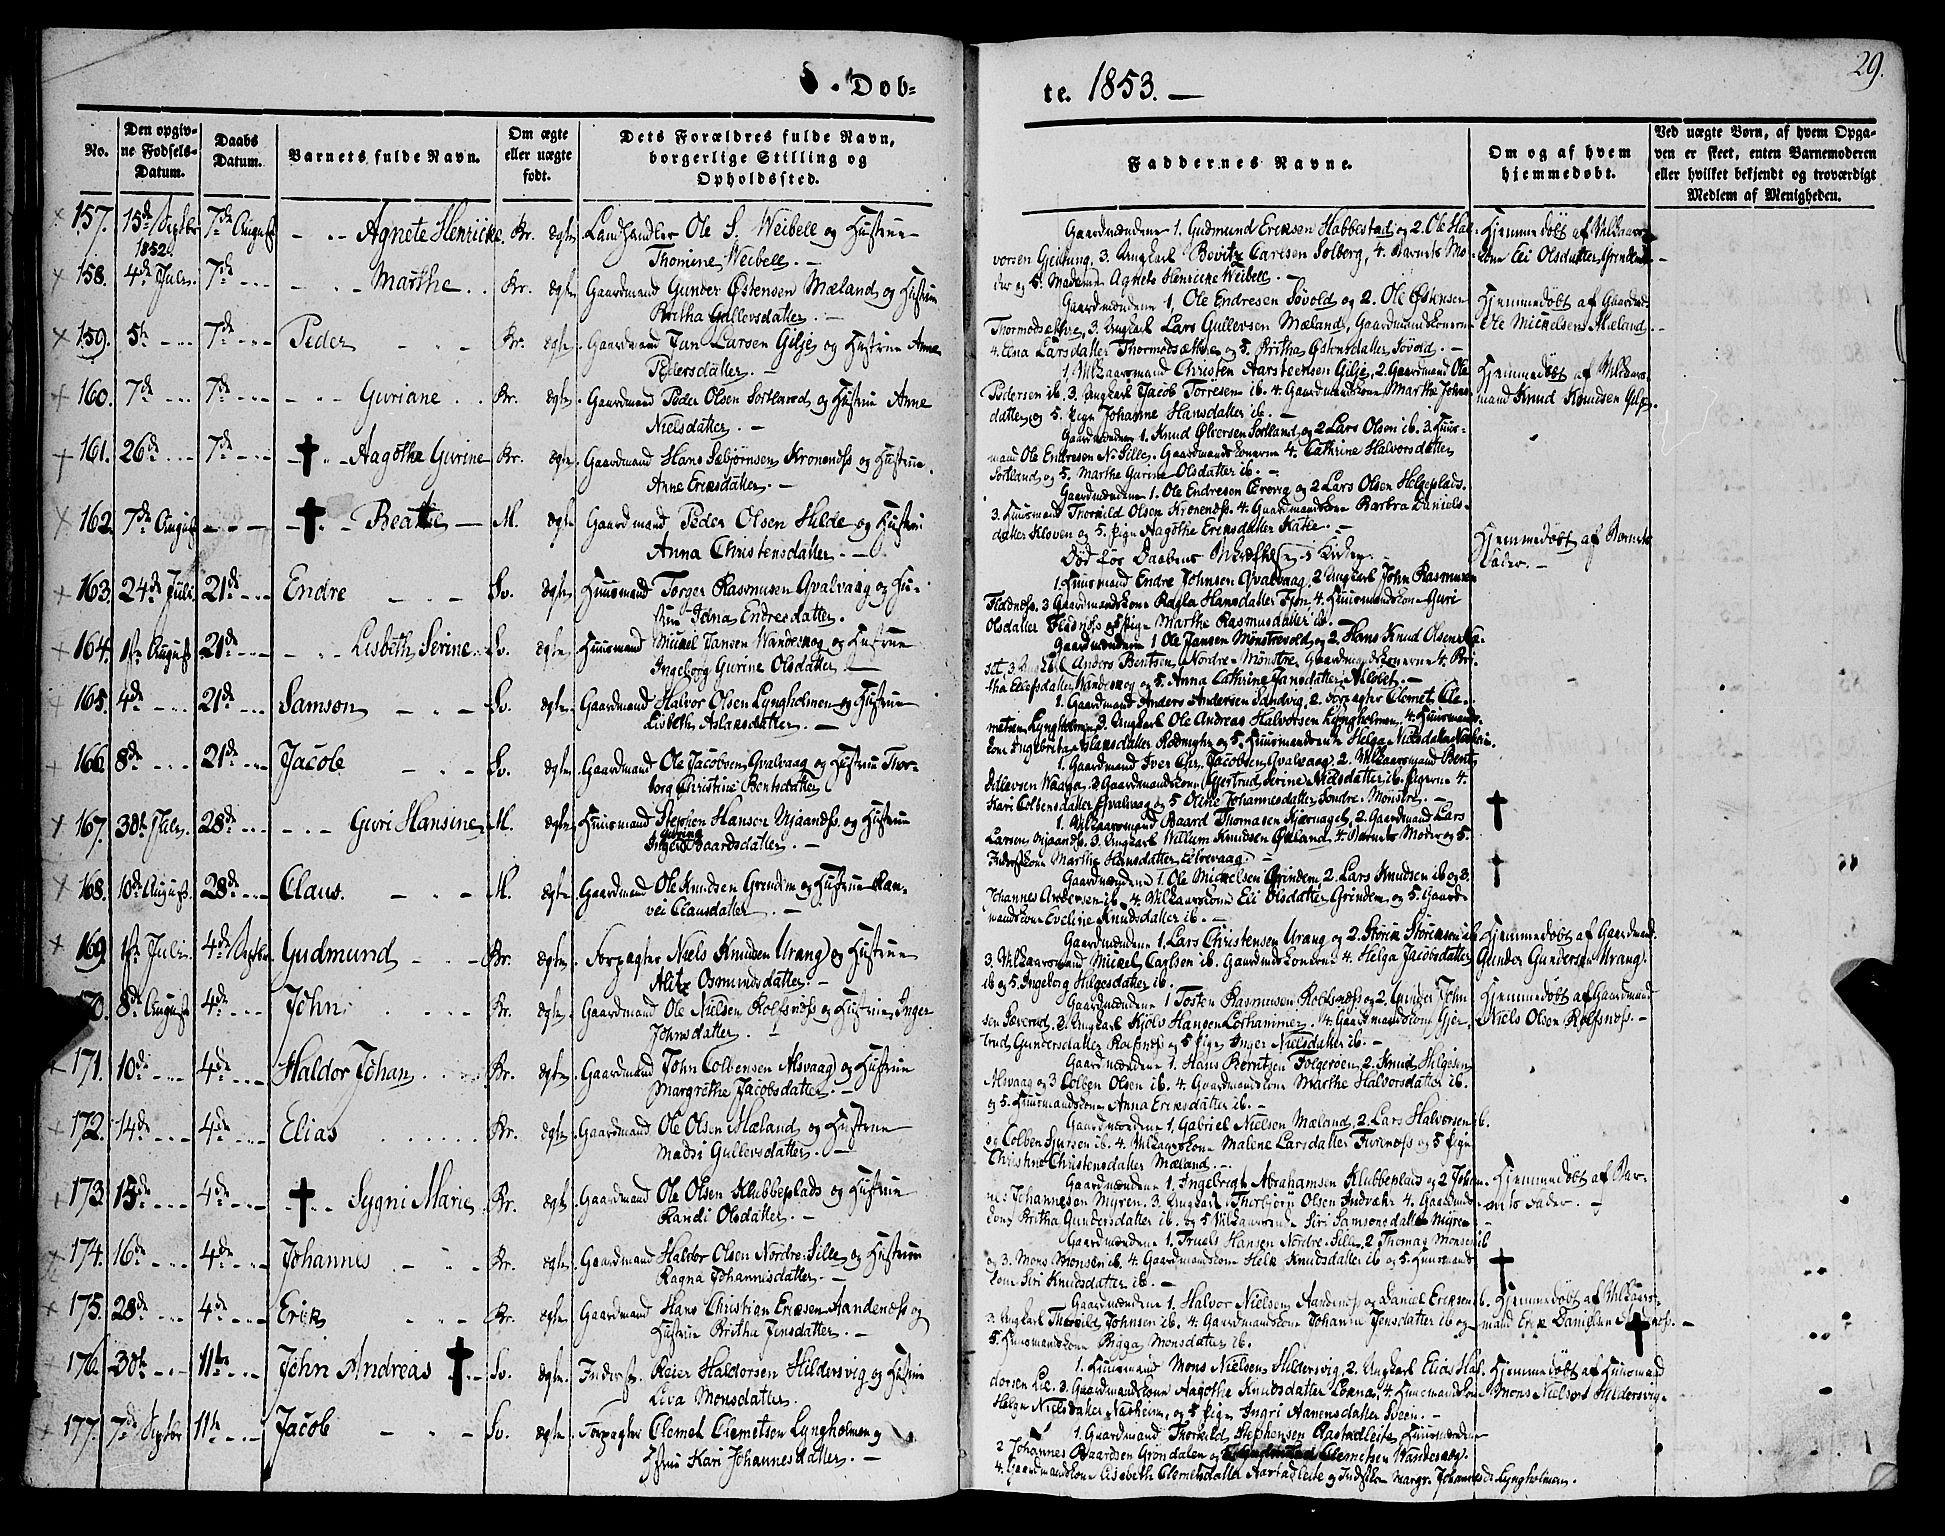 Döb=
te. 1853. —
29.
No.
Den opgiv-
ne Fødsels-
Datum.
Daabs
Datum.
Barnets fulde Navn.
Om ægte
eller uægte
født.
Dets Forældres fulde Navn,
borgerlige Stilling og
Opholdssted.
Faddernes Navne.
Om og af hvem
hjemmedøbt.
Ved uægte Børn, af hvem Opga-
ven er skeet, enten Barnemoderen
eller hvilket bekjendt og troværdigt
Medlem af Menigheden.
157. 15de Septbr 1852. 7de August Agnete Henricke Br. ægte Landhandler Ole S. Weibell og Hustrue
Thomine Weibell. —
Gaardmændene 1. Gudmund Eriksen Habbestad og 2. Ole Hal-
vorsen Geitung, 3. Ungkarl Bevitz Carlsen Solberg, 4. Barnets Mo-
der og 5. Madame Agnete Henricke Weibell. —
158. 4de Juli. 7de Marthe Br. ægte Gaardmand Gunder Østensen Mæland og Hustrue
Britha Gullersdatter. —
Gaardmændene 1. Ole Endresen Søvold og 2. Ole Østensen
Thormodsæthre, 3. Ungkarl Lars Gullersen Mæland, Gaardmandskonerne
4. Elna Larsdatter Thormodsæthre og 5. Britha Østensdatter Søvold. —
Hjemmedøbt af Gaardmd
Ole Mickelsen Mæland.
159. 5te 7de Peder Br. ægte Gaardmand Jan Larsen Gilje og Hustrue Anne
Pedersdatter. —
1. Vilkaarsmand Christen Aarsteensen Gilje, 2. Gaardmand Ole
Pedersen ib. 3. Ungkarl Jacob Torresen ib. 4. Gaardmandskone Marthe Johns
datter og 5. Pige Johanne Hansdatter ib. —
Hjemmedøbt af Vilkaars-
mand Knud Knudsen Gilje.
160. 7de 7de Guriane Br. ægte Gaardmand Peder Olsen Sortland og Hustrue Anne
Nielsdatter. —
Gaardmændene 1. Knud Ølversen Sortland og 2 Lars Olsen ib. 3. Huus-
mand Ole Endresen N. Sille. Gaardmandskonerne 4. Cathrine Halvorsdatter
Sortland og 5. Marthe Gurine Olsdatter ib. —
161. 26de 7de Aagothe Gurine Br. ægte Gaardmand Hans Sæbjørnsen Kroneness og Hustrue
Anne Eriksdatter. —
Gaardmændene 1. Ole Endresen og 2 Lars Olsen Helgeplads.
3. Huusmand Thorkild Olsen Kroneness. 4. Gaardmandskone Barbra Daniels-
datter Kloven og 5. Pige Aagothe Eriksdatter Katle. —
162. 7de August Beathe M. ægte Gaardmand Peder Olsen Hilde og Hustrue
Anna Christensdatter. —
Død før Daabens Bekræftelse i Kirken.
Hjemmedøbt af Barnets
Fader. —
163. 24de Juli 21de Endre Sv. ægte Huusmand Torger Rasmusen Qvalvaag og Hu-
strue Edna Endresdatter.
1. Huusmand Endre Johnsen Qvalvaag, 2 Ungkarl John Rasmusen
Fladness. 3 Gaardmandskone Ragla Hansdatter Tjøn. 4. Huusmandskone Guri
Olsdatter Fladness og 5. Pige Marthe Rasmusdatter ib. —
164. 1ste August 21de Lisbeth Serine Sv. ægte Huusmand Mickel Jansen Wandeskog og Hustrue
Ingeborg Gurine Olsdatter. —
Gaardmændene 1 Ole Jansen Mønstrevold og 2. Hans Knud Olsen
3. Ungkarl Anders Bentsen Nordre-Mønstre, Gaardmandskonerne 4. Bri-
tha Ellefsdatter Wandeskog og 5. Anna Cathrine Jansdatter
165. 4de 21de Samson Sv. ægte Gaardmand Halvor Olsen Lyngholmen og Hustrue
Lisbeth Aslaksdatter. —
1. Gaardmand Anders Andersen Sandvig, 2. Forpagter Clemet Cle-
metsen Lyngholmen, 3. Ungkarl Ole Andreas Halvorsen Lyngholmen, 4. Huusmands-
166. 8de 21de Jacob Sv. ægte Gaardmand Ole Jacobsen Qvalvaag og Hustrue Thor-
borg Christine Bentsdatter
1. Gaardmand Iver Chr. Jacobsen Qvalvaag, 2. Vilkaarsmand Bent
Ditlevsen Waaga. 3 Gaardmandskone Gjertrud Serine Nielsdatter ib. Pigerne 4.
Kari Colbensdatter Qvalvaag og 5 Oline Johannesdatter Søndre-Mønstre. —
167. 30te Juli. 28de Guri Hansine M. ægte Huusmand Stephen Hansen Mjaaness. og Hustrue
Ingeborg Gurine Baardsdatter. —
1. Vilkaarsmand Baard Thomasen Kjærnaget, 2. Gaardmand Lars
Larsen Mjaaness. 3. Ungkarl Willum Knudsen Økland, 4. Barnets Moder og 5.
Inderstkone Marthe Hansdatter
168. 10de August. 28de Claus. M. ægte Gaardmand Ole Knudsen Grindem og Hustrue Ran-
vei Clausdatter. —
Gaardmændene 1. Ole Mickelsen Grindem, 2. Lars Knudsen ib og 3.
Johannes Andersen ib. 4. Vilkaarskone Eli Olsdatter Grindem og 5. Gaard-
mandskone Eveline Knudsdatter ib. —
169 1ste Juli. 4de Septbr. Gudmund Br. ægte Forpagter Niels Knudsen Urang og Hustrue
Alis Osmundsdatter. —
Gaardmændene 1. Lars Christensen Urang og 2. Størk Størksen ib
3. Vilkaarsmand Mickel Carlsen ib. Gaardmandskonerne 4. Helga Jacobsdatter
ib og 5. Ingeborg Helgesdatter ib.
Hjemmedøbt af Gaardmand
Gunder Gundersen Urang.
170. 8de August 4de John Br. ægte Gaardmand Ole Nielsen Rolfsness og Hustrue Inger
Johnsdatter. —
Gaardmændene 1 Tosten Rasmusen Rolfsness og 2. Gunder John
sen Sæverud, 3. Ungkarl Kjøls Hansen Lothammer. 4. Gaardmandskone Gjer-
trud Gundersdatter Rolfsness og 5 Pige Inger Nielsdatter ib. —
Hjemmedøbt af Gaardmand
Niels Olsen Rolfsness. —
171. 10de 4de Haldor Johan Br. ægte Gaardmand John Colbensen Alsvaag og Hustrue
Margrethe Jacobsdatter. —
Gaardmændene 1. Hans Berntsen Folgerøen, 2. Knud Helgesen
Alsvaag og 3 Colben Olsen ib. 4. Gaardmandskone Marthe Halvorsdatter ib.
og 5. Huusmandskone Anna Eriksdatter ib. —
172. 14de 4de Elias Br. ægte Gaardmand Ole Olsen Mæland og Hustrue
Madsi Gullersdatter. —
Gaardmændene 1. Gabriel Nielsen Mæland, 2. Lars Halvorsen ib.
og Colben Sjursen ib. 4. Vilkaarskone Malene Larsdatter Fureness og 5 Pige
Christine Christensdatter Mæland. —
173. 15de 4de Sygni Marie Br. ægte Gaardmand Ole Olsen Klubbeplads og Hustrue
Randi Olsdatter. —
Gaardmændene 1. Ingebregt Abrahamsen Klubbeplads og 2 Johan-
nes Johannesen Myren. 3. Ungkarl Thorbjørn Olsen Indvær 4. Gaardmands-
kone Britha Gundersdatter ib. og 5 Vilkaarskone Siri Samsonsdatter Myren. —
Hjemmedøbt af Bar-
nets Fader. —
174. 16de 4de Johannes Br. ægte Gaardmand Haldor Olsen Nordre-Sille og Hustrue
Ragna Johannisdatter. —
Gaardmændene 1. Truels Hansen Nordre-Sille, 2 Thomas Monsen ib
og 3. Mons Monsen ib. 4. Gaardmandskone Hele Knudsdatter ib og 5. Huusmands
kone Siri Knudsdatter ib. —
175. 28de 4de Erik Br. ægte Gaardmand Hans Christian Eriksen Aandeness og
Hustrue Britha Jensdatter. —
Gaardmændene 1. Halvor Nielsen Aandeness og Daniel Eriksen ib.
3. Ungkarl Thorkild Johnsen ib. 4. Gaardmandskone Johanna Jensdatter ib og
5. Huusmandskone Brigga Monsdatter ib.
Hjemmedøbt af Vilkaars-
mand Erik Danielsen
176. 30te 11te John Andreas Sv. ægte Inderst. Reier Haldorsen Hildersvig og Hustrue
Liva Monsdatter.
1. Huusmand Mons Nielsen Hildersvig, 2. Ungkarl Elias Hal-
dorsen Lie. 3. Gaardmandskone Aagothe Knudsdatter Lønna, 4 Huusmandskone
Helga Nielsdatter Næsheim, og 5 Pige Ingri Aanensdatter Sveen. —
Hjemmedøbt af Huusmand
Mons Nielsen Hildersvig
177. 7de Septbr 11te Jacob Sv. ægte Forpagter Clemet Clemetsen Lyngholmen og
Hustrue Kari Johannesdatter. —
1. Gaardmand Thorkild Stephensen Rastadleite, Huusmændene
2 Johannes Baardsen Grøndalen og Clemetsen Wandeskog.
4. Gaardmandskone Lisebeth Clemetsdatter Aartadleite og Indstkone Margr. Johannesd. Lyngholmen.